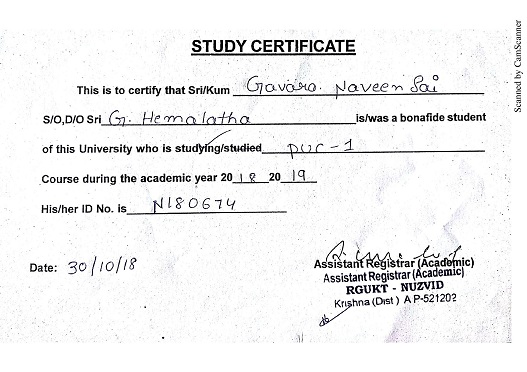 STUDY CERTIFICATE
This is to certify that Sri/Kum Gavara. Naveen Sai
S/O,D/O Sri G. Hemalatha is/was a bonafide student
of this University who is studying/studied PUC-1
Course during the academic year 20 18 20 19
His/her ID No. is N180674
Date: 30/10/18
Assistant Registrar (Academic)
Assistant Registrar (Academic)
RGUKT - NUZVID
Krishna (Dist) A P-521202
Scanned by CamScanner